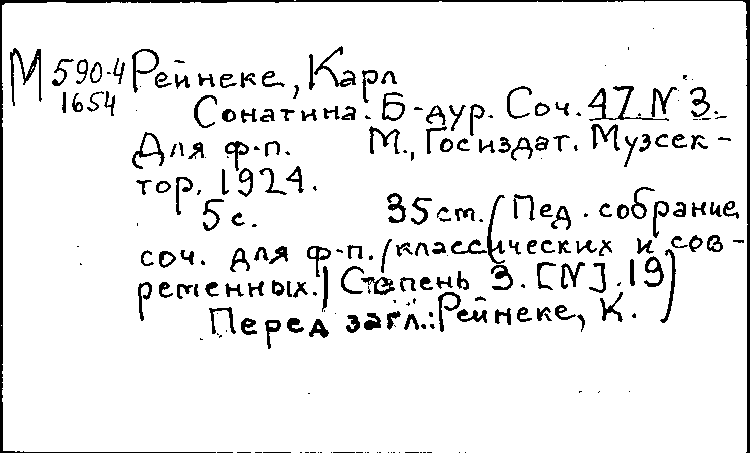 М 590-4 Рейнеке, Карл
1654 Сонатина. Б-дур. Соч. 47. N 3.
Для ф-п. М., Госиздат. Музсек-
тор. 1924.
5 с. 35 cm. (Пед. собрание
соч. для ф-п. /классических и сов-
ременных./ Степень 3. [N]. 19)
Перед загл.: Рейнеке, К.